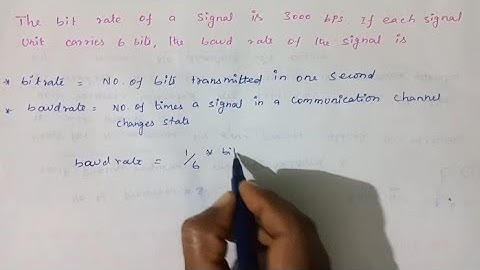 The bit rate of a signal is 3000 bps. If each signal
unit carries 6 bits, the baud rate of the signal is
* bitrate = No. of bits transmitted in one second
* baudrate = No. of times a signal in a communication channel
changes state
baud rate = 1/6 * bi